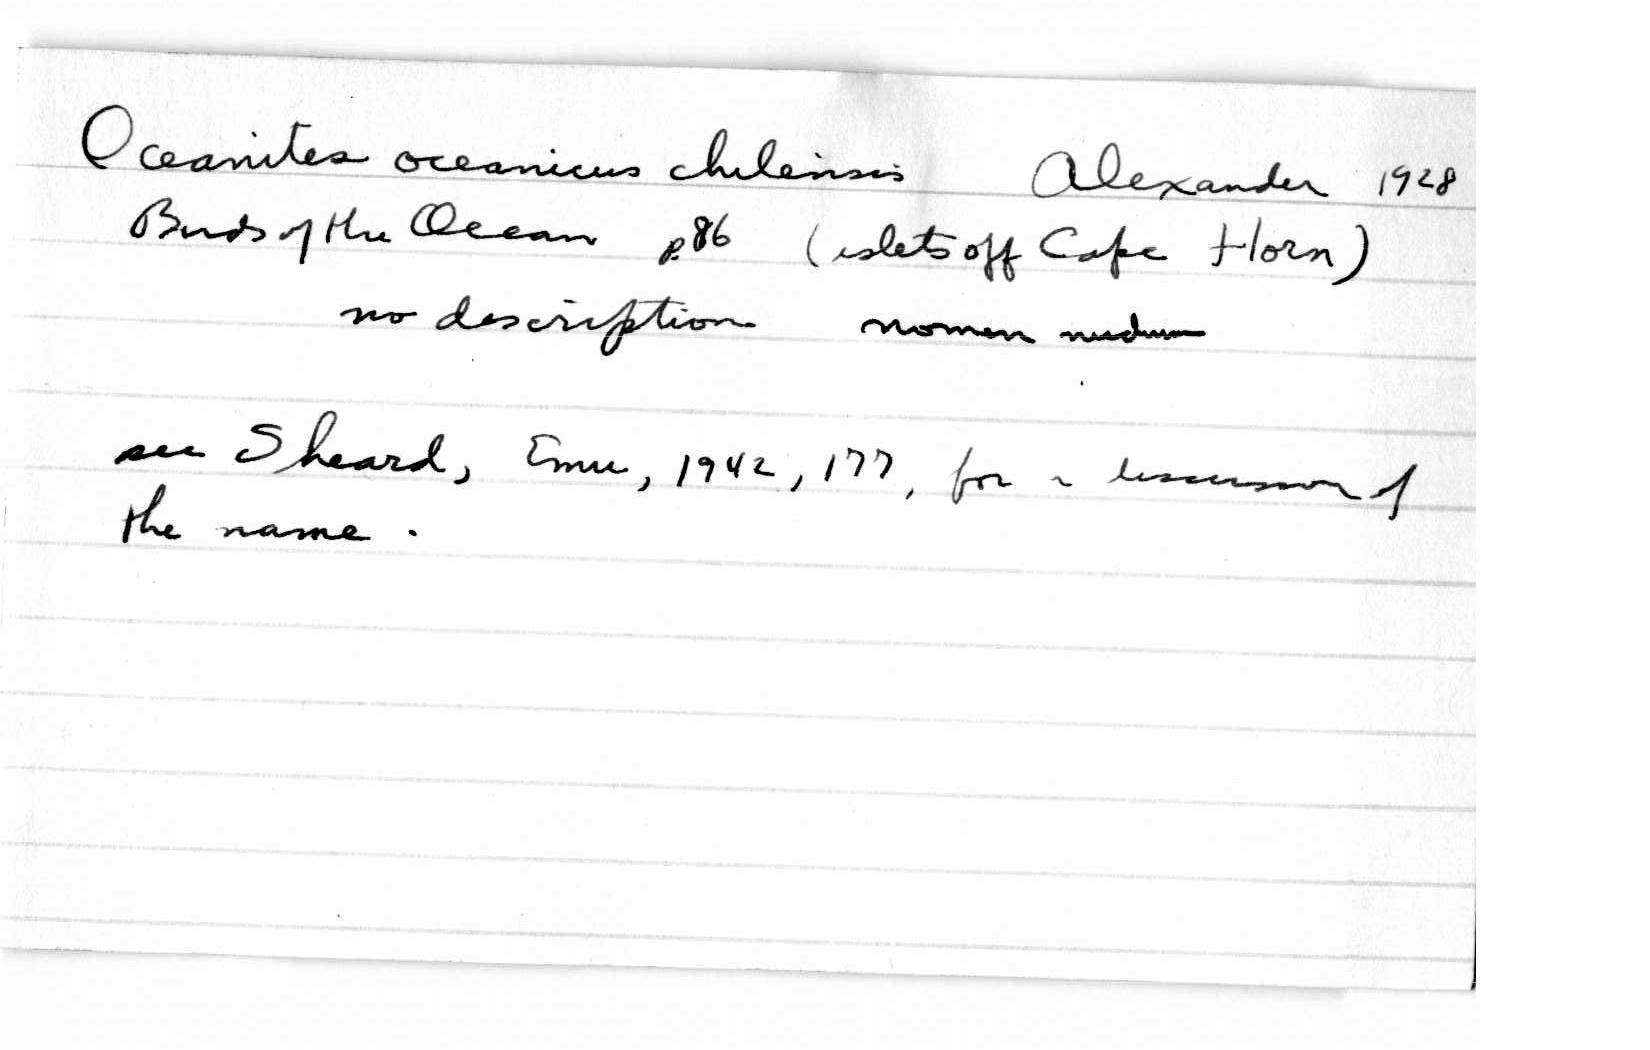 Oceanites oceanicus chilensis Alexander 1928
Birds of the Ocean p.86 (islets off Cape Horn)
no description nomen nudum
see Sheard, Emu, 1942, 177, for a discussion of
the name.